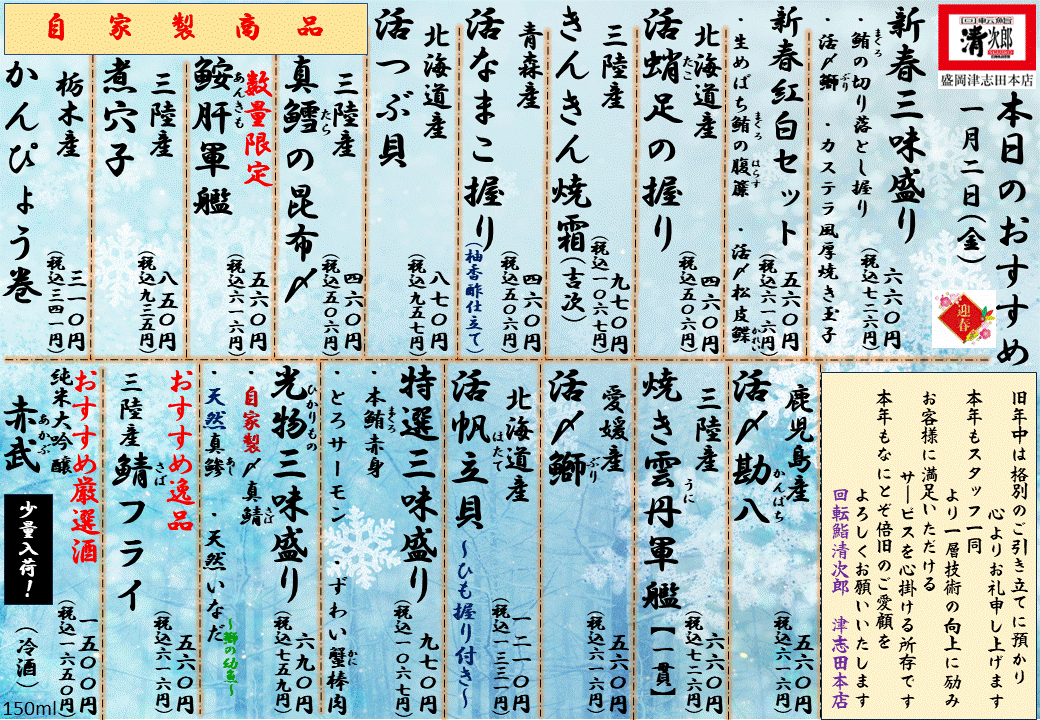 回転鮨
清次郎
盛岡津志田本店
本日のおすすめ
一月二日(金)
迎春
新春三味盛り
・鮪の切り落とし握り
まぐろ
・活〆鰤
ぶり
・カステラ風厚焼き玉子
六六〇円
(税込七二六円)
新春紅白セット
・生めばち鮪の腹簾
まぐろ
はらす
・活〆松皮鰈
かれい
五六〇円
(税込六一六円)
北海道産
活蛸足の握り
たこ
四六〇円
(税込五〇六円)
三陸産
きんきん焼霜(吉次)
九七〇円
(税込一〇六七円)
青森産
活なまこ握り
(柚香酢仕立て)
四六〇円
(税込五〇六円)
北海道産
活つぶ貝
八七〇円
(税込九五七円)
自家製商品
三陸産
真鱈の昆布〆
たら
四六〇円
(税込五〇六円)
数量限定
鮟肝軍艦
あんきも
五六〇円
(税込六一六円)
三陸産
煮穴子
八五〇円
(税込九三五円)
栃木産
かんぴょう巻
三一〇円
(税込三四一円)
旧年中は格別のご引き立てに預かり
心よりお礼申し上げます
本年もスタッフ一同
より一層技術の向上に励み
お客様に満足いただける
サービスを心掛ける所存です
本年もなにとぞ倍旧のご愛顧を
よろしくお願いいたします
回転鮨清次郎 津志田本店
鹿児島産
活〆勘八
かんぱち
五六〇円
(税込六一六円)
三陸産
焼き雲丹軍艦【一貫】
うに
六六〇円
(税込七二六円)
愛媛産
活〆鰤
ぶり
五六〇円
(税込六一六円)
北海道産
活帆立貝
ほたて
~ひも握り付き~
一二一〇円
(税込一三三一円)
特選三味盛り
・本鮪赤身
まぐろ
・とろサーモン
・ずわい蟹棒肉
かに
九七〇円
(税込一〇六七円)
光物三味盛り
ひかりもの
・自家製〆真鯖
さば
・天然真鯵
あじ
・天然いなだ
~鰤の幼魚~
六九〇円
(税込七五九円)
おすすめ逸品
三陸産鯖フライ
さば
五六〇円
(税込六一六円)
おすすめ厳選酒
純米大吟醸
赤武
あかぶ
少量入荷!
一五〇〇円
(税込一六五〇円)
(冷酒)
150ml